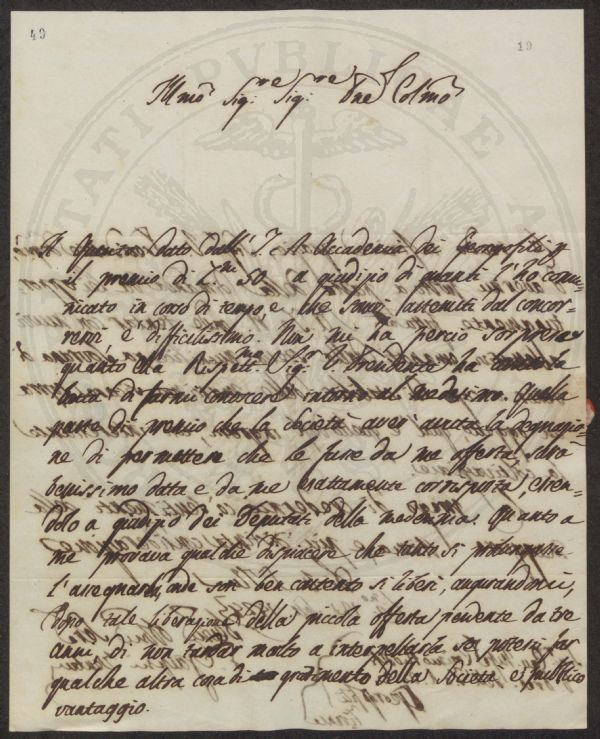 49
19
Illmo Sig.re Sig.re Pne Colmo
Il Quesito dato dall' I. R. Accademia dei Georgofili p
il premio di Z.ni 50 a giudizio di quanti l'ho comu-
nicato in corso di tempo, e che sonosi astenuti dal concor-
rervi, è difficilissimo. Non mi ha perciò sorpreso
quanto Ella Rispett.ma Sig.r Presidente ha
bontà di farmi conoscere intorno al medesimo. Quella
parte di premio che la Società aver' avuta la degnazio-
ne di permettere che le fosse da me offerta sarà
benissimo data e da me esattamente corrisposta, essen-
dolo a giudizio dei Deputati della medesima. Quanto a
me provava qualche dispiacere che tanto si prolungasse
l'assegnarsi, onde son ben contento si liberi, augurandomi,
dopo tale liberazione della piccola offerta pendente da tre
anni, di non tardar molto a interpellarla se potessi far
qualche altra cosa di gradimento della Società e pubblico
vantaggio.